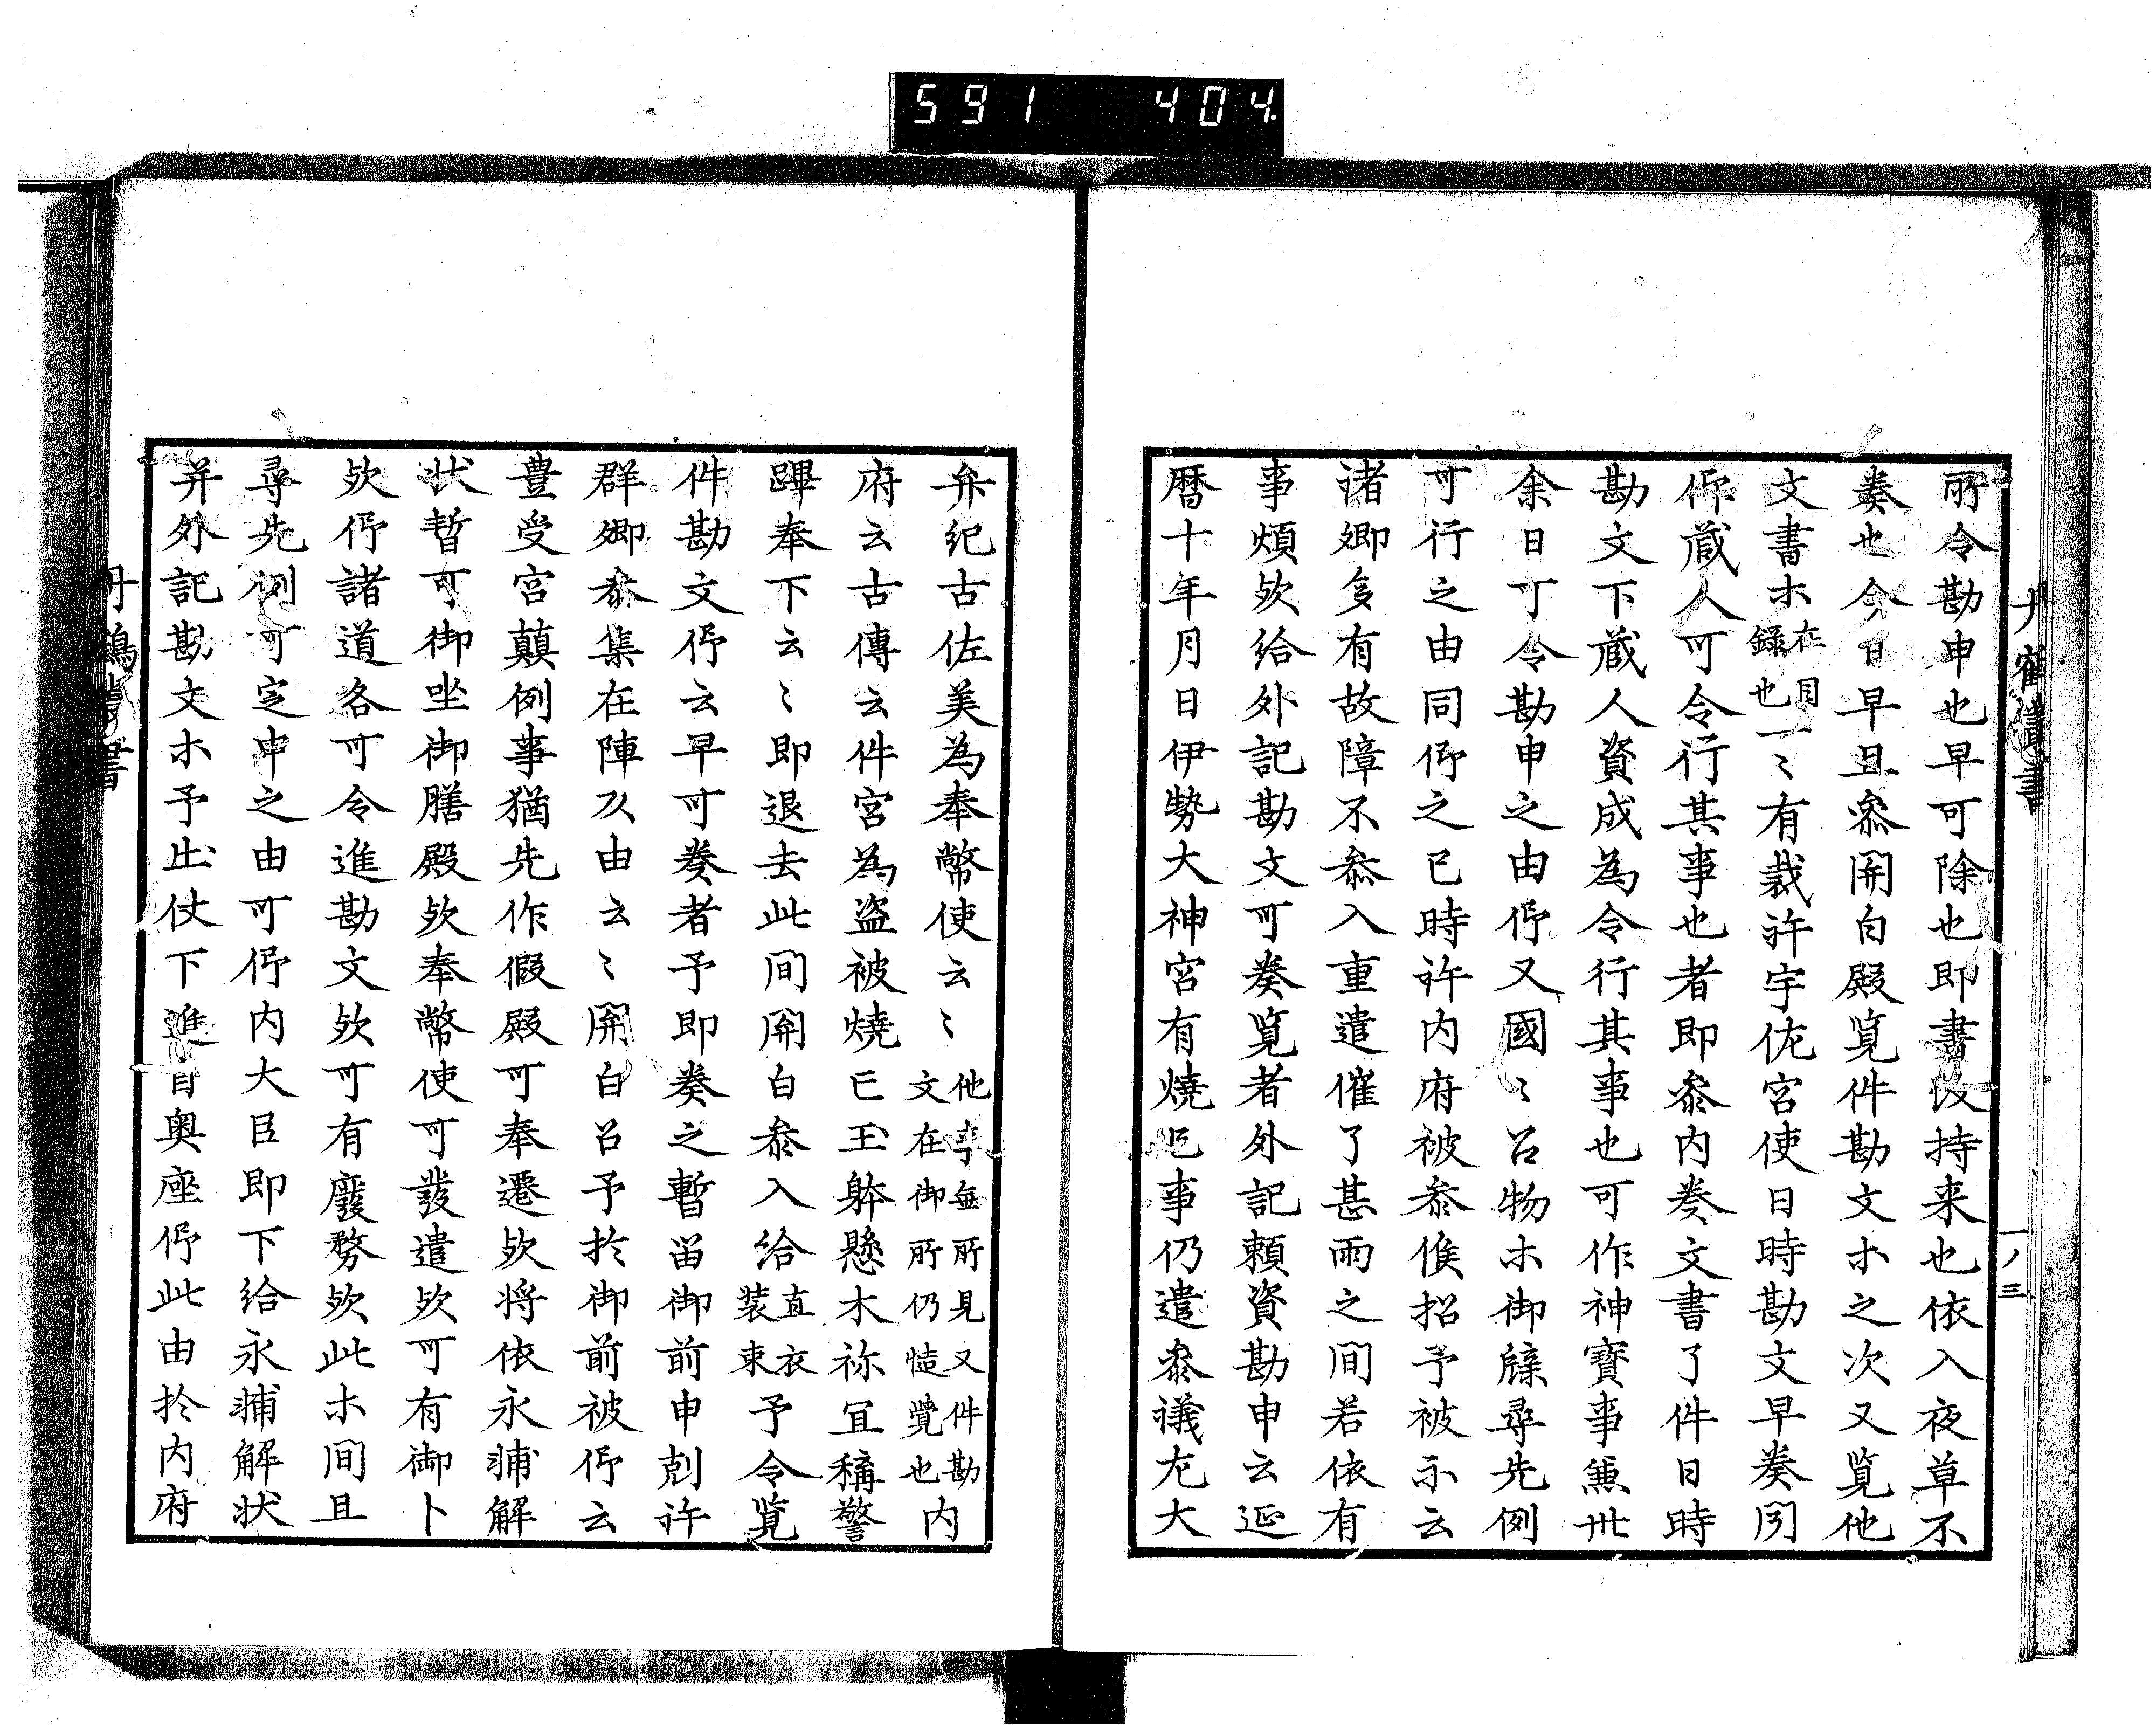 591 404
所令勘申也早可除也即書改持来也依入夜草不
奏也今日早旦参関白殿覧件勘文ホ之次又覧他
文書ホ在目録也一々有裁許宇佐宮使日時勘文早奏聞
仰蔵人可令行其事也者即参内奏文書了件日時
勘文下蔵人資成為令行其事也可作神寶事兼卅
余日可令勘申之由仰又國々召物ホ御牒尋先例
可行之由同仰之巳時許内府被参候招予被示云
諸卿多有故障不参入重遣催了甚雨之間若依有
事煩欤給外記勘文可奏覧者外記頼資勘申云延
暦十年月日伊勢大神宮有焼亡事仍遣参議左大
弁紀古佐美為奉幣使云々他事無所見又件勘文在御所仍慥覚也内
府云古傳云件宮為盗被焼亡玉躰懸木祢冝稱警
蹕奉下云々即退去此間関白参入給直衣装束予令覧
件勘文仰云早可奏者予即奏之暫留御前申剋許
群卿参集在陣以由云々関白召予於御前被仰云
豊受宮顛例事猶先作假殿可奉遷欤将依永輔解
状暫可御坐御膳殿欤奉幣使可發遣欤可有御卜
欤仰諸道各可令進勘文欤可有廢務欤此ホ間且
尋先例可定申之由可仰内大臣即下給永輔解状
并外記勘文ホ予出仗下進自奥座仰此由於内府
丹鶴叢書